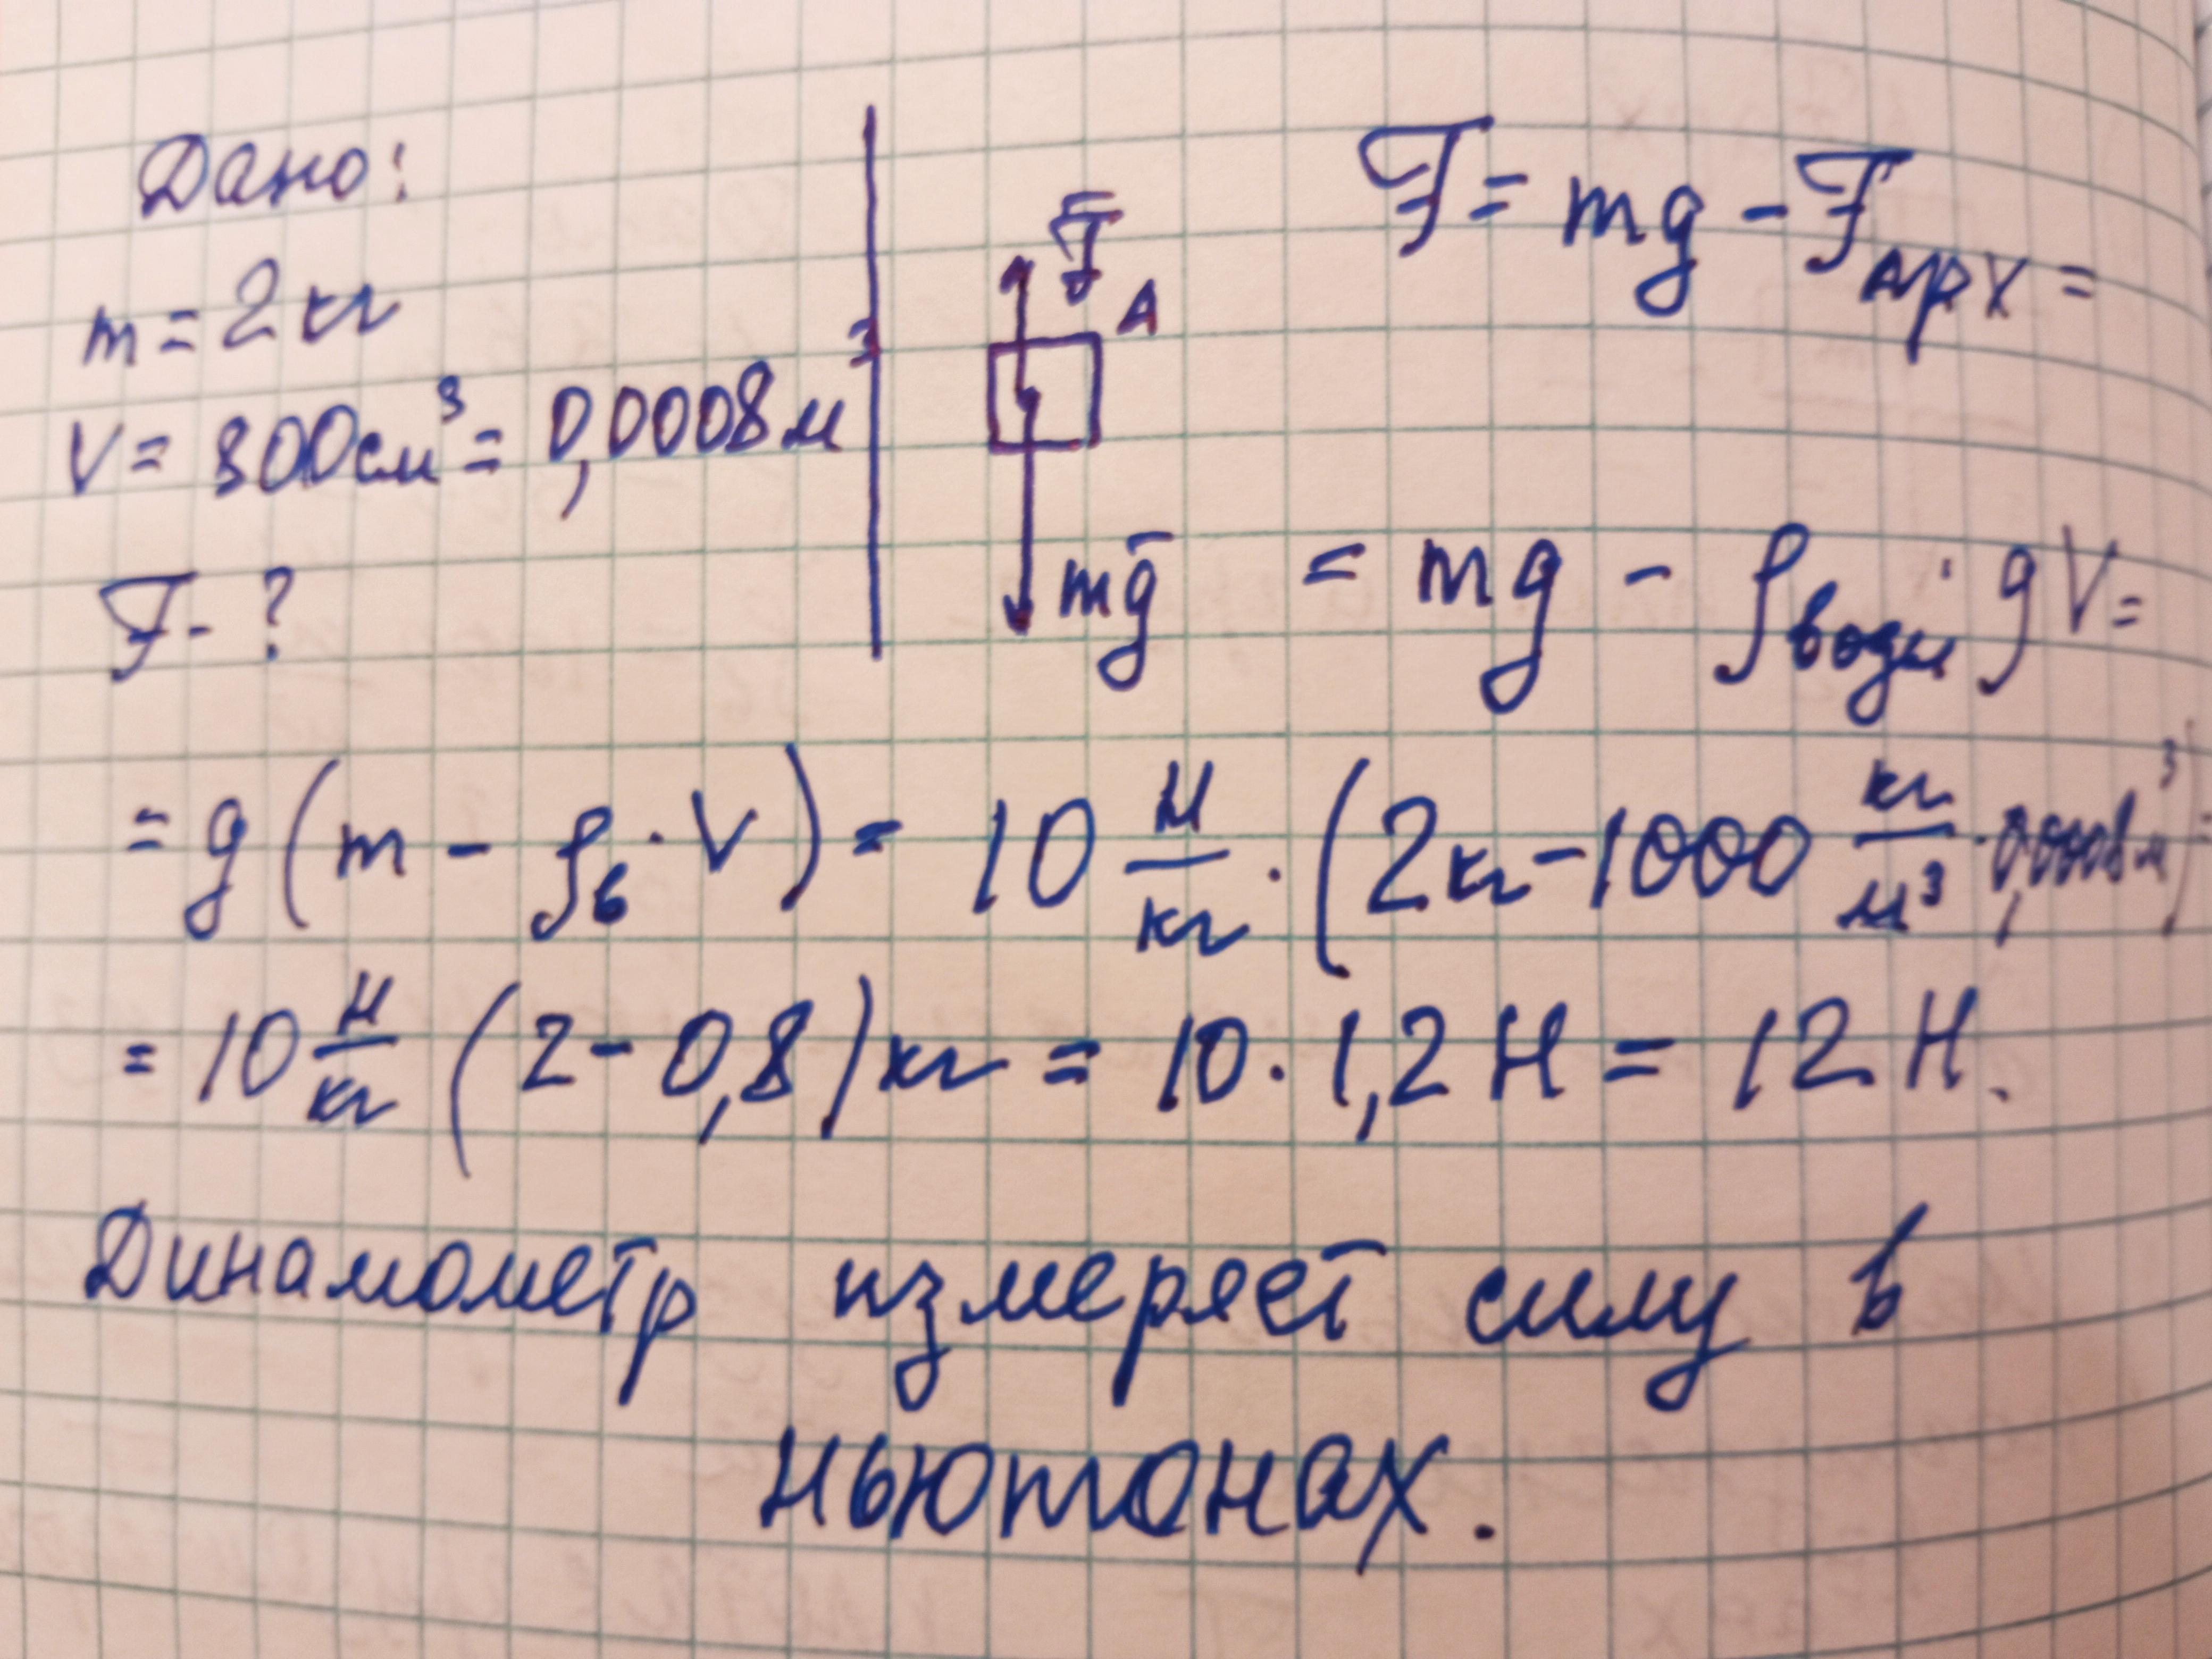 Дано:
m = 2 кг
V = 800 см³ = 0,0008 м³
F - ?
F̄ A
mḡ
F = mg - Fарх =
= mg - ρводы · gV =
= g (m - ρв · V) = 10 Н/кг · (2 кг - 1000 кг/м³ · 0,0008 м³) =
= 10 Н/кг (2 - 0,8) кг = 10 · 1,2 Н = 12 Н.
Динамометр измеряет силу в
ньютонах.